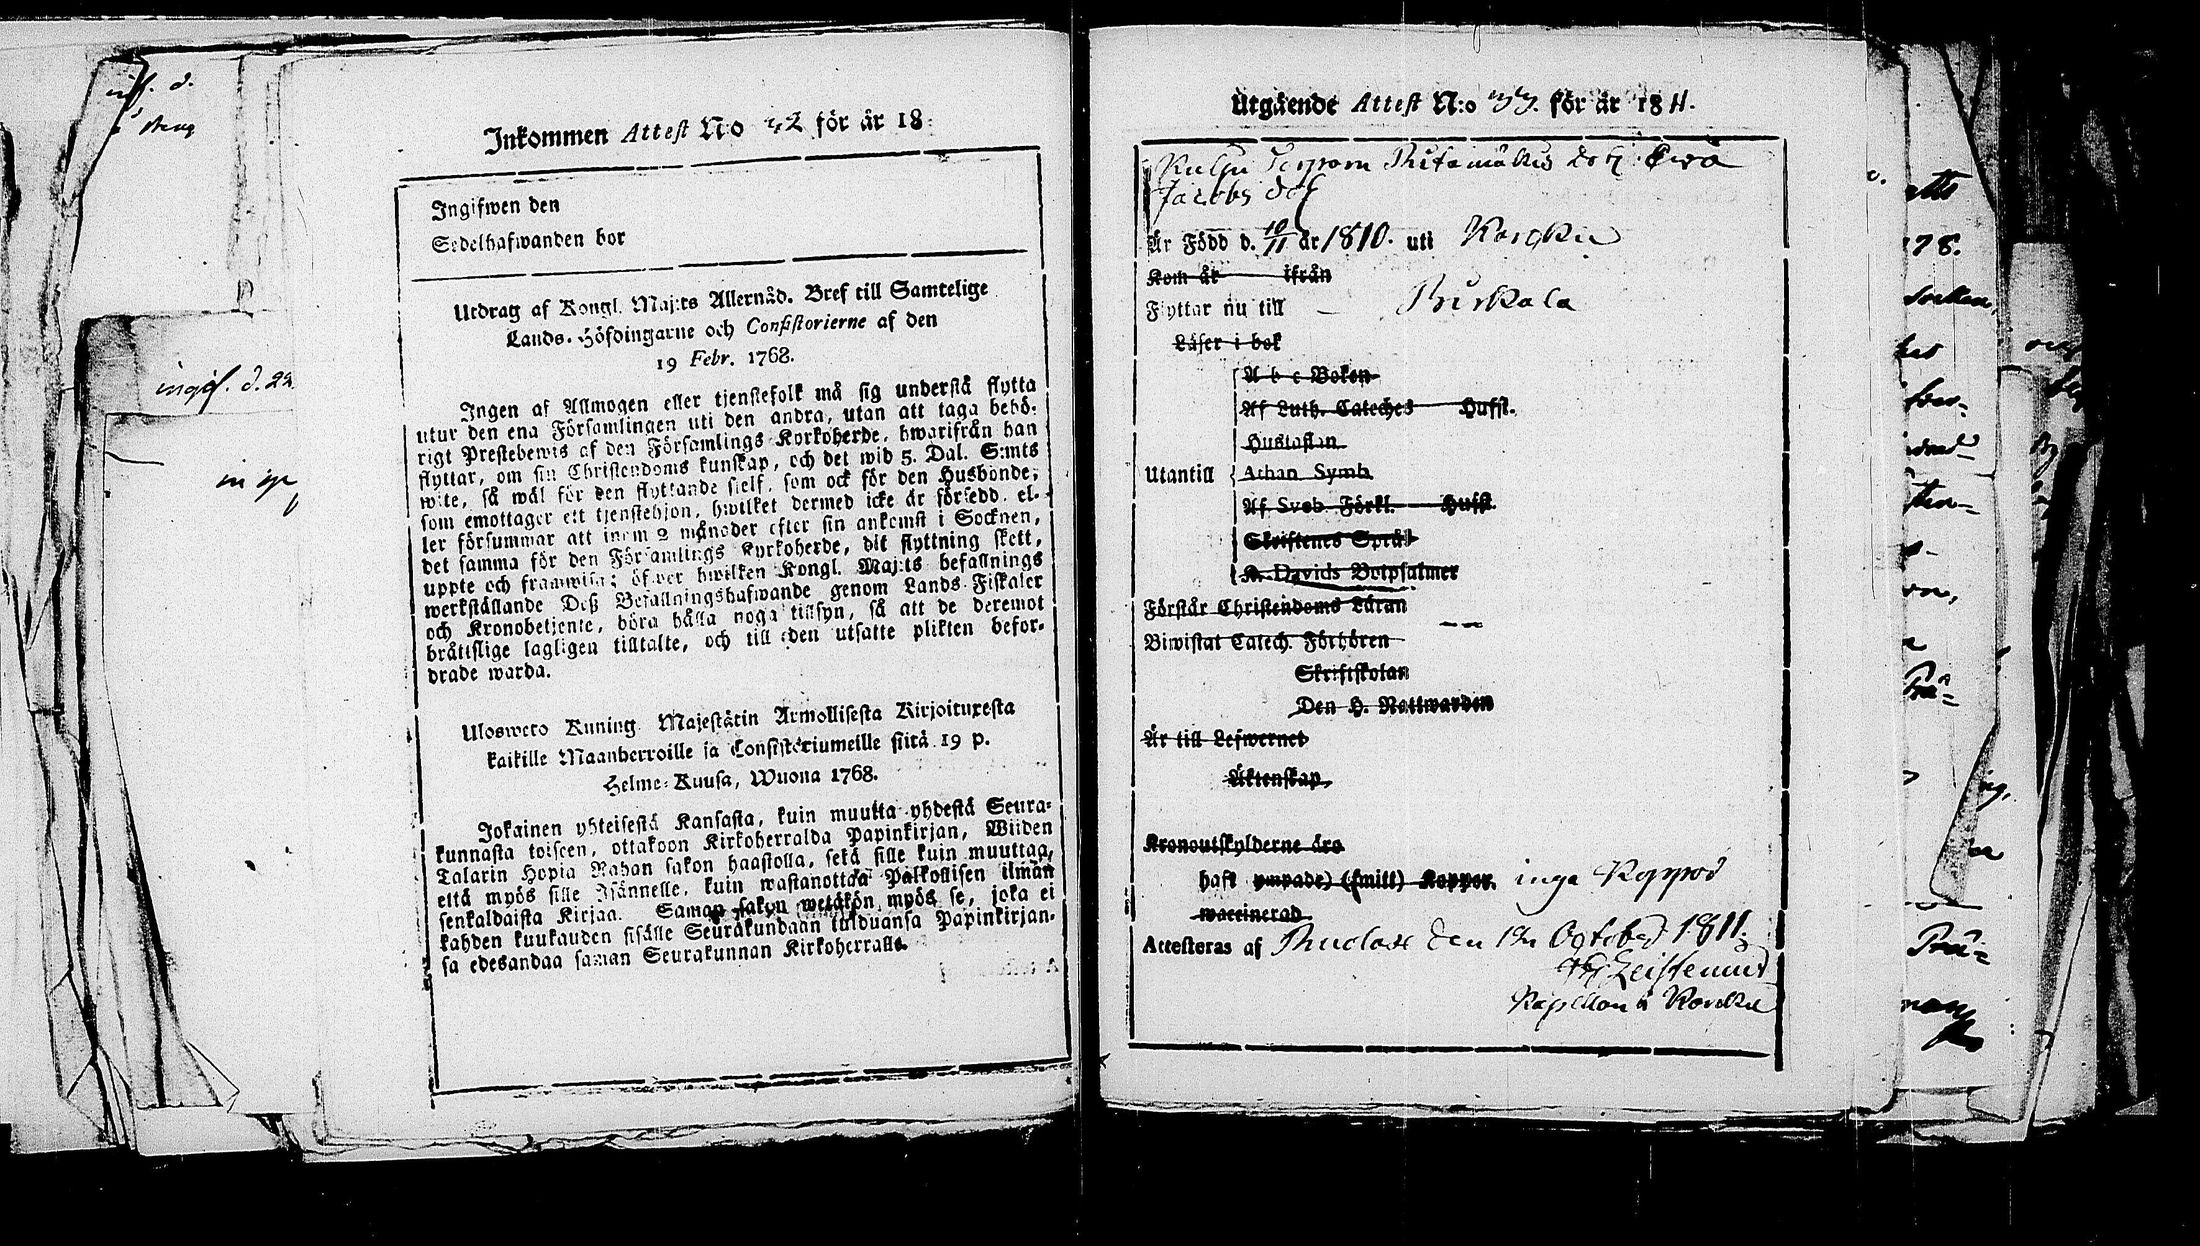 Inkommen Attest N:o 32 för år 18
Ingifwen den
Sedelhafwanden bor
Utdrag af Kongl. Maj:ts Allernåd. Bref till Samtelige
Lands-Höfdingarne och Consistorierne af den
19 Febr. 1768.
Ingen af Allmogen eller tjenstefolk må sig understå flytta
utur den ena Församlingen uti den andra, utan att taga behö-
rigt Prestebewis af den Församlings Kyrkoherde, hwarifrån han
flyttar, om sin Christendoms kunskap, och det wid 5. Dal. S:mts
wite, så wäl för den flyttande sielf, som ock för den Husbonde,
som emottager ett tjenstehjon, hwilket dermed icke är försedd, el-
ler försummar att inom 2 månader efter sin ankomst i Socknen,
det samma för den Församlings Kyrkoherde, dit flyttning skett,
uppte och framwisa; öfwer hwilken Kongl. Maj:ts befallnings
werkställande Deß Befallningshafwande genom Lands-Fiskaler
och Kronobetjente, böra hålla noga tillsyn, så att de deremot
bråttslige lagligen tilltalte, och till den utsatte plikten befor-
drade warda.
Ulosweto Kuning. Majestätin Armollisesta Kirjoituxesta
kaikille Maanherroille ja Consistoriumeille siitä 19 p.
Helme-Kuusa, Wuona 1768.
Jokainen yhteisestä Kansasta, kuin muutta yhdestä Seura-
kunnasta toiseen, ottakoon Kirkoherralda Papinkirjan, Wiiden
Talarin Hopia Rahan sakon haastolla, sekä sille kuin muuttaa,
että myös sille Isännelle, kuin wastanottaa Palkollisen ilman
senkaldaista Kirjaa. Saman sakon wetäkön myös se, joka ei
kahden kuukauden sisälle Seurakundaan tulduansa Papinkirjan-
sa edesandaa saman Seurakunnan Kirkoherralle.
Utgående Attest N:o 33 för år 1811.
dott: Ewa
Jacobs dott
Är Född d. 10/11 år 1810. uti Kordkis
Kom år ifrån
Flyttar nu till — Birkala
Läser i bok
A b c Boken
Af Luth. Cateches Hufst.
Hustaflan
Utantill Athan Symb
Af Sveb. Förkl. Hufst.
Skriftenes Språk
K. Davids Botpsalmer
Förstår Christendoms Läran
Biwistat Catech. Förhören
Skriftskolan
Den H. Nattwarden
Är till Lefwernet
Äktenskap
Kronoutskylderne äro
haft ympade) (smitt) Koppor. inga Koppor
waccinerad
Attesteras af den October 1811.